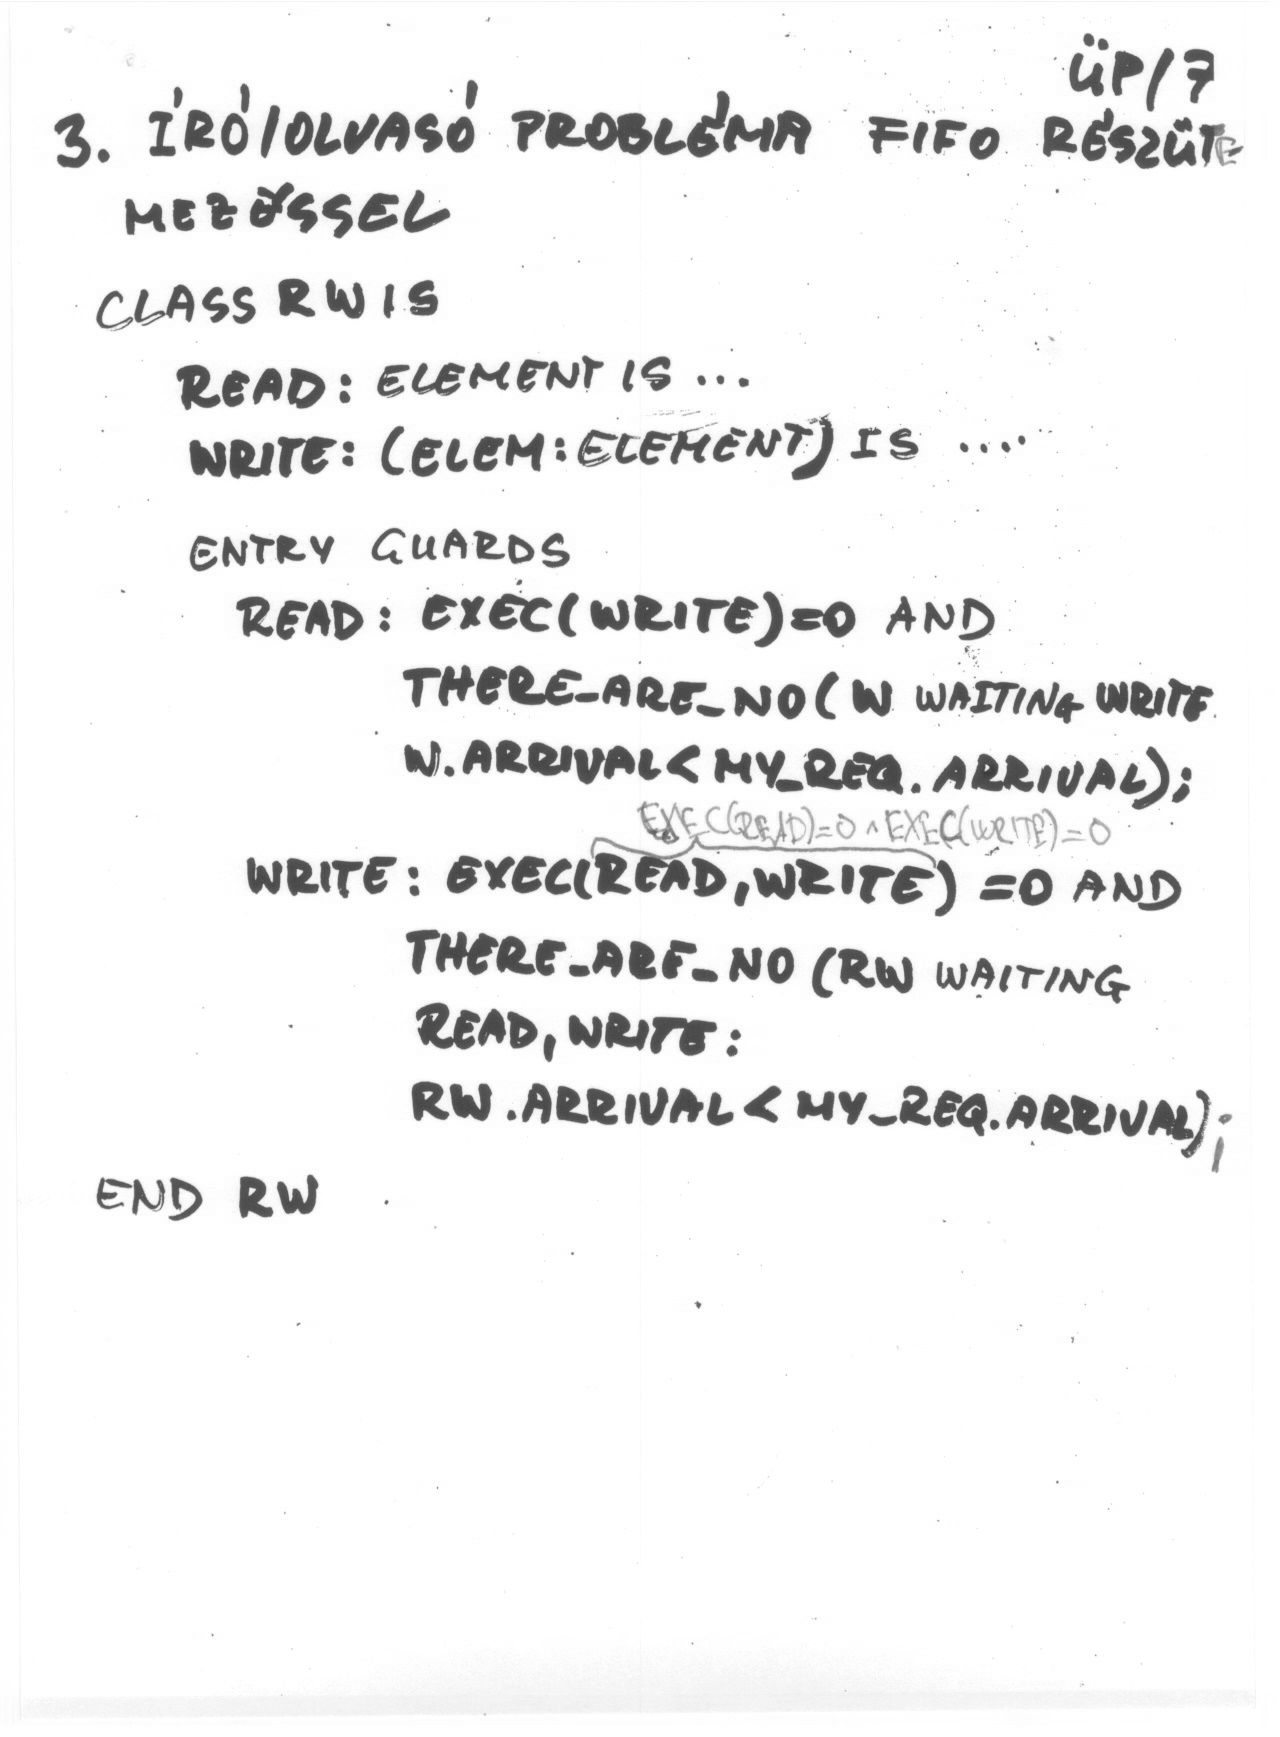 ÜP/7
3. ÍRÓ/OLVASÓ PROBLÉMA FIFO RÉSZÜTE
MEZÉSSEL
CLASS RW IS
READ: ELEMENT IS ...
WRITE: (ELEM: ELEMENT) IS ....
ENTRY GUARDS
READ: EXEC(WRITE)=0 AND
THERE_ARE_NO(W WAITING WRITE
W.ARRIVAL<MY_REQ.ARRIVAL);
EXEC(READ)=0 ∧ EXEC(WRITE)=0
WRITE: EXEC(READ,WRITE)=0 AND
THERE_ARE_NO (RW WAITING
READ, WRITE:
RW.ARRIVAL<MY_REQ.ARRIVAL);
END RW